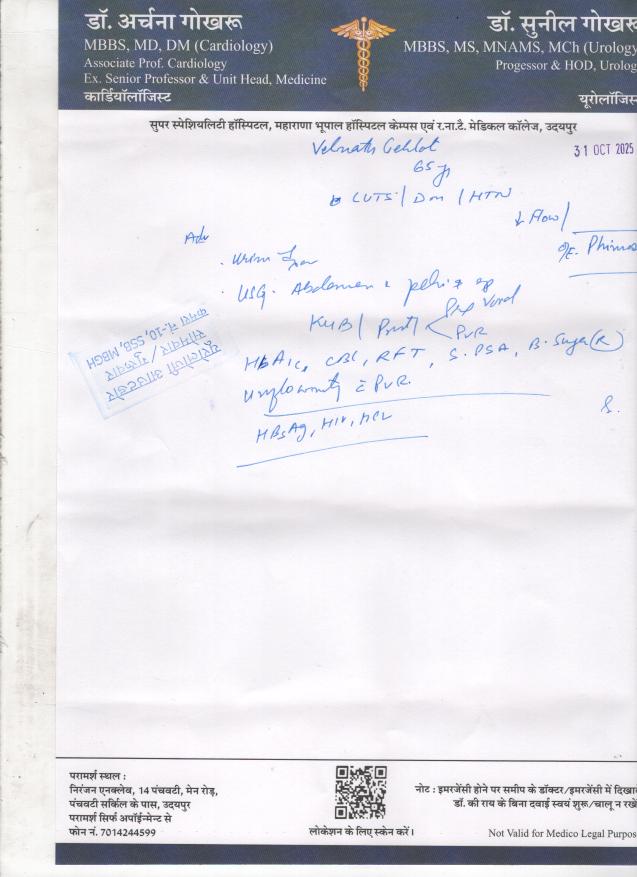 डॉ. अर्चना गोखरू
MBBS, MD, DM (Cardiology)
Associate Prof. Cardiology
Ex. Senior Professor & Unit Head, Medicine
कार्डियॉलॉजिस्ट
डॉ. सुनील गोखरू
MBBS, MS, MNAMS, MCh (Urology
Progessor & HOD, Urolog
यूरोलॉजिस्
सुपर स्पेशियलिटी हॉस्पिटल, महाराणा भूपाल हॉस्पिटल केम्पस एवं र.ना.टै. मेडिकल कॉलेज, उदयपुर
Gehlot
31 OCT 2025
65 y
LUTS / DM / HTN
↓ Flow /
O/E. Phimos
Adv
Urine
USG. Abdomen & pelvis
KUB / Prost < Pre Void
PVR
HbA1c, CBC, RFT, S. PSA, B. Sugar (R)
Uroflowmetry c̄ PVR.
HBsAg, HIV, HCV
यूरोलॉजी आउटडोर
सोमवार / गुरुवार
कमरा नं.-10, SSB, MBGH
परामर्श स्थल :
निरंजन एनक्लेव, 14 पंचवटी, मेन रोड़,
पंचवटी सर्किल के पास, उदयपुर
परामर्श सिर्फ अपॉईन्मेन्ट से
फोन नं. 7014244599
लोकेशन के लिए स्केन करें।
नोट : इमरजेंसी होने पर समीप के डॉक्टर/इमरजेंसी में दिखा
डॉ. की राय के बिना दवाई स्वयं शुरू/चालू न रखे
Not Valid for Medico Legal Purpos